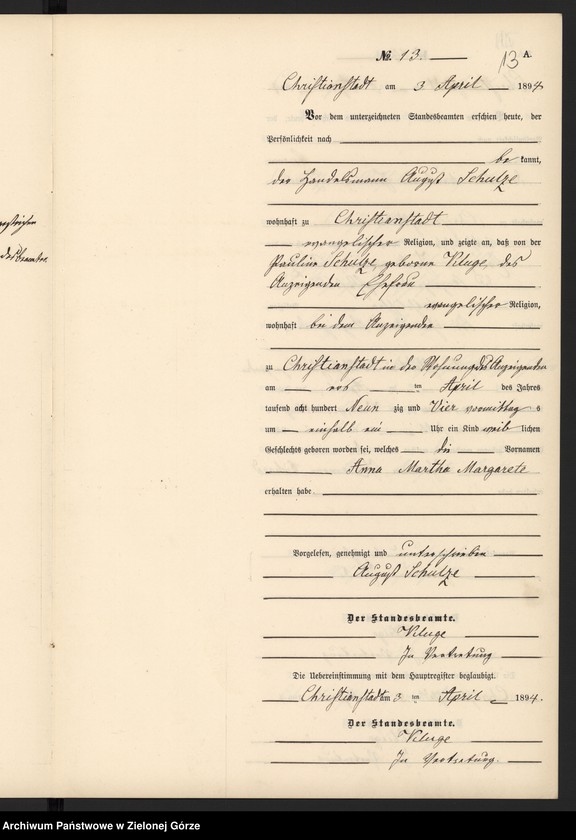 No. 13.
13 A.
Christianstadt am 3 April 1894
Vor dem unterzeichneten Standesbeamten erschien heute, der
Persönlichkeit nach
be kannt,
der Handelsmann August Schulze
wohnhaft zu Christianstadt
evangelischer Religion, und zeigte an, daß von der
Pauline Schulze, geborne Kluge, des
Anzeigenden Ehefrau
evangelischer Religion,
wohnhaft bei dem Anzeigenden
zu Christianstadt in der Wohnung des Anzeigenden
am ers ten April des Jahres
tausend acht hundert Neun zig und Vier vormittag s
um einhalb ein Uhr ein Kind weib lichen
Geschlechts geboren worden sei, welches die Vornamen
Anna Martha Margarete
erhalten habe
Vorgelesen, genehmigt und unterschrieben
August Schulze
Der Standesbeamte.
Kluge
In Vertretung
Die Uebereinstimmung mit dem Hauptregister beglaubigt.
Christianstadt am 3 ten April 1894.
Der Standesbeamte.
Kluge
In Vertretung.
Archiwum Państwowe w Zielonej Górze